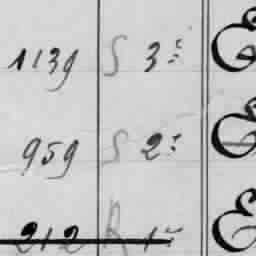 1139 S 3 E
959 S 2 E
212 R 1 E